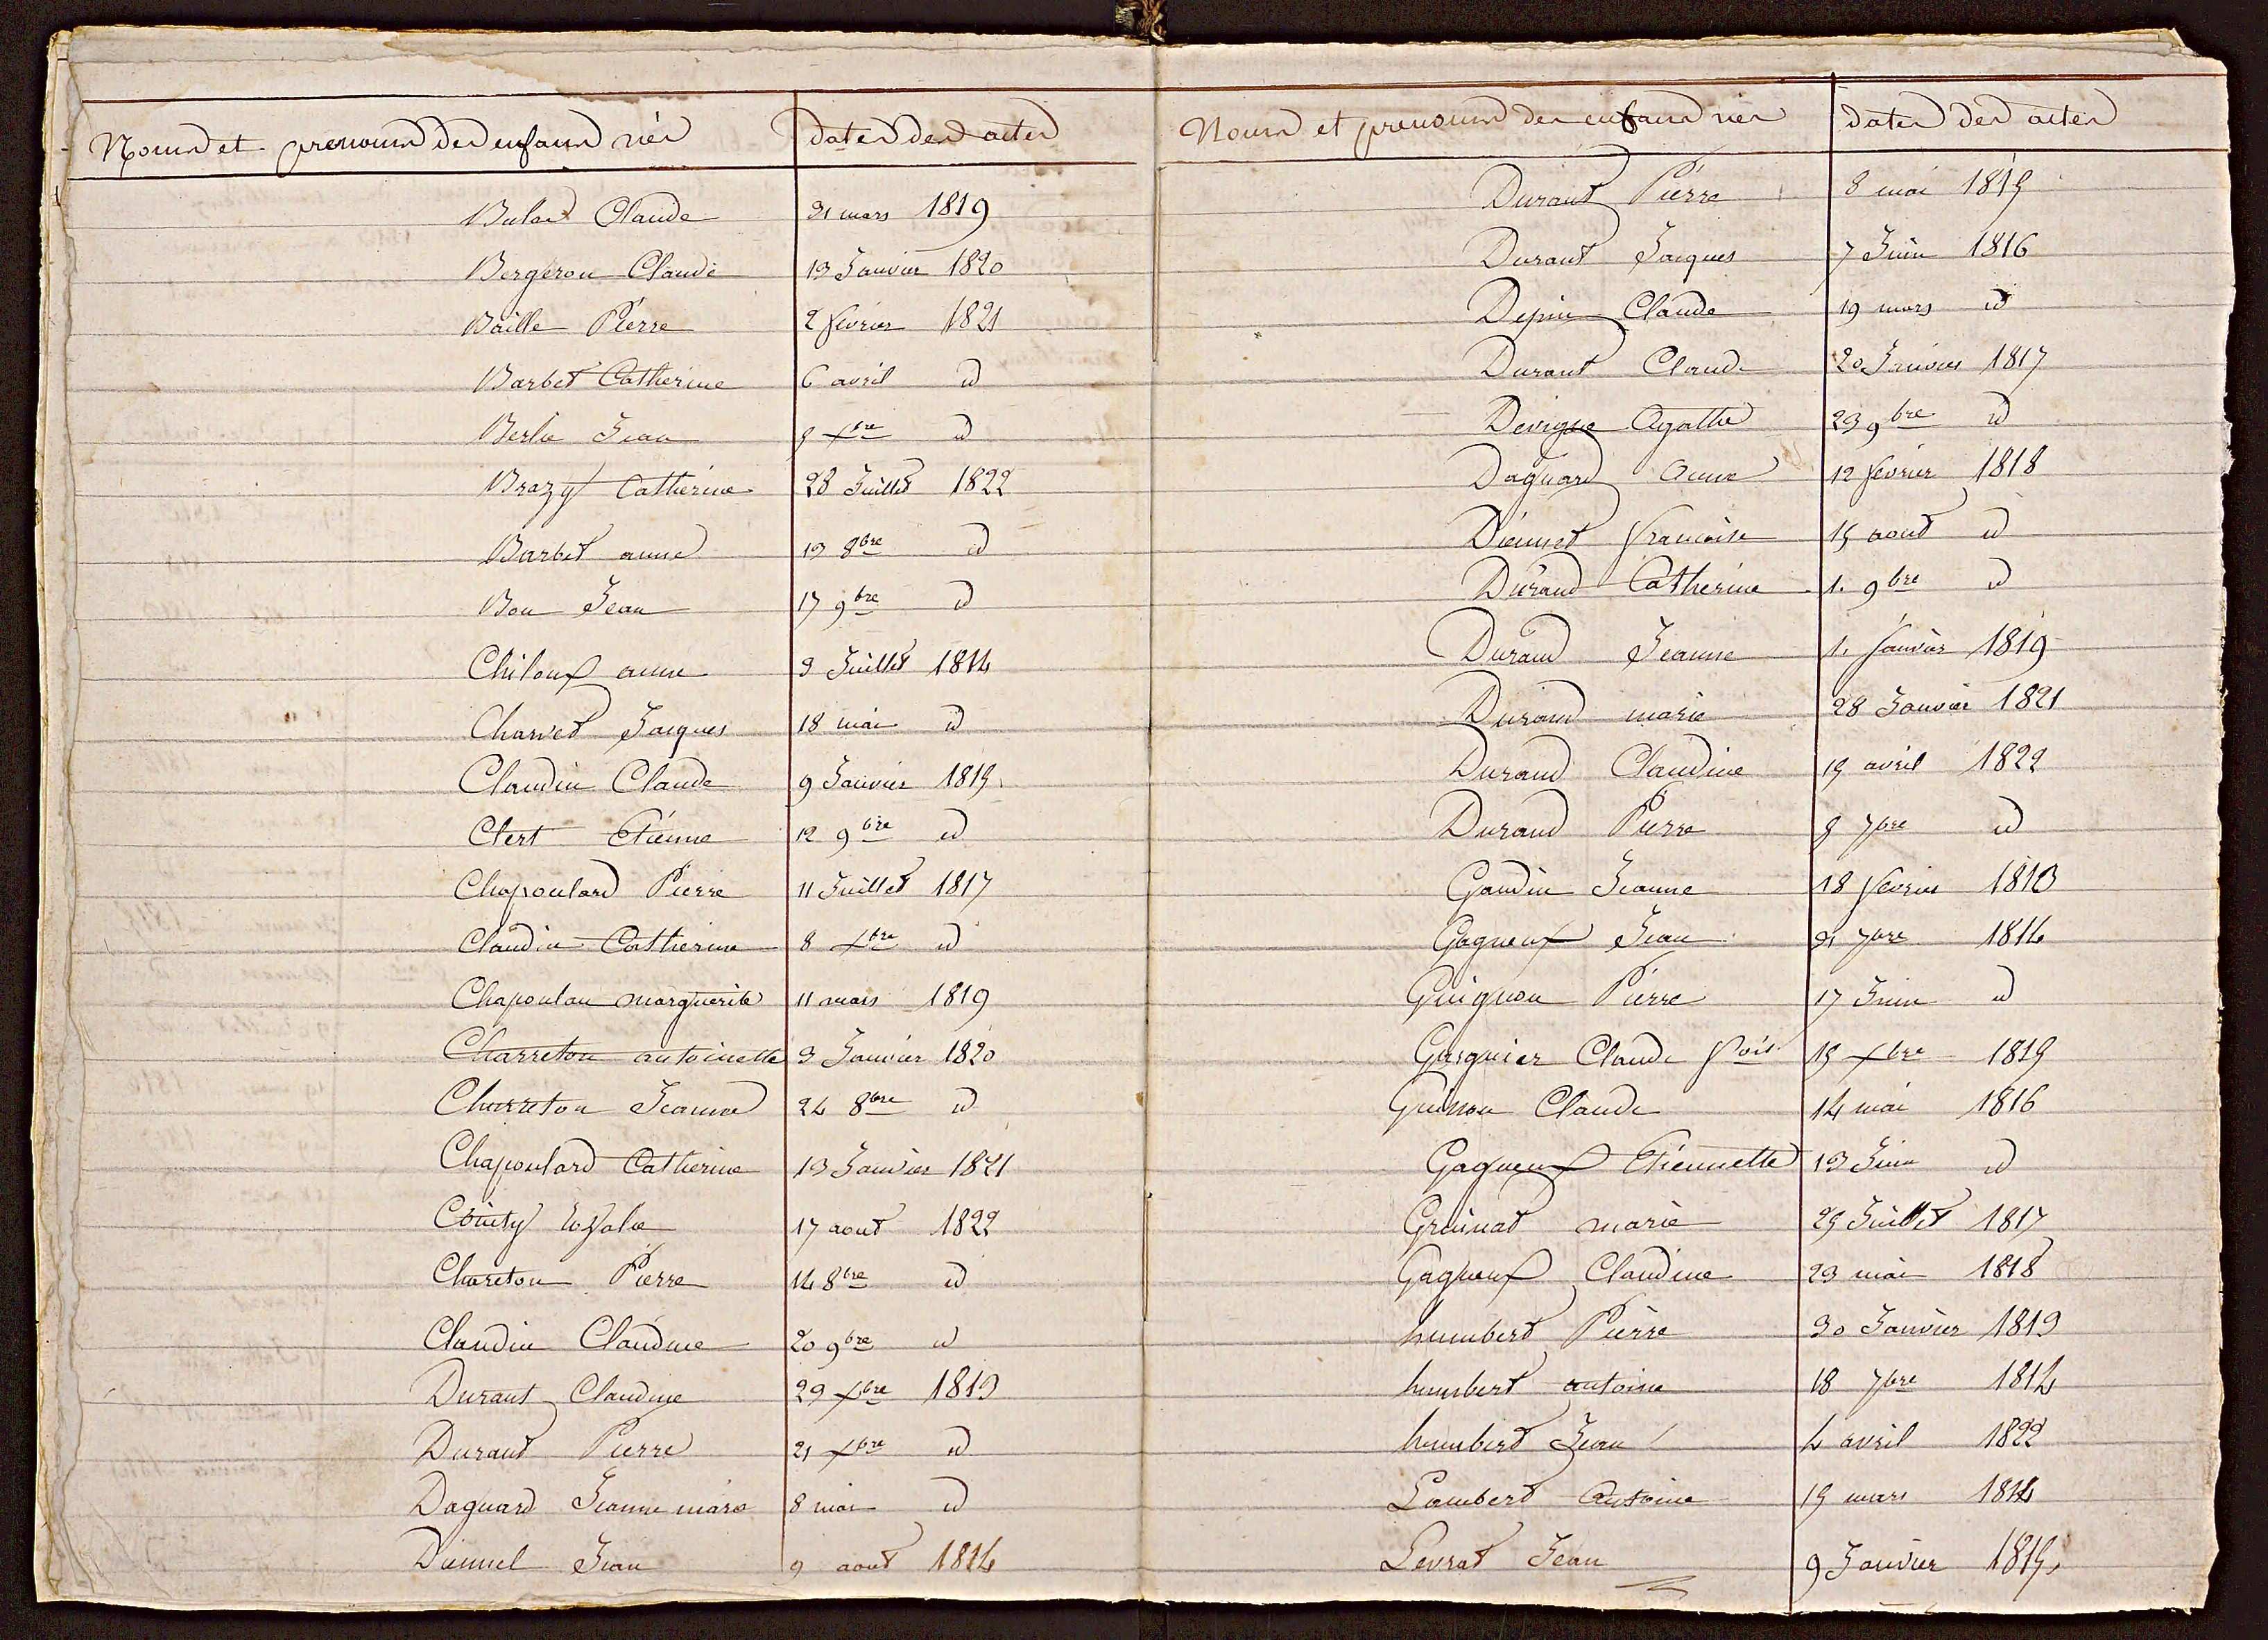 Noms et prenoms des enfans nés dates des actes
Bulad Claude 21 mars 1819
Bergeron Claude 13 Janvier 1820
Baille Pierre 2 février 1821
Barbet Catherine 6 avril id
Jean xbre id
Brazy Catherine 28 Juillet 1822
Barbet anne 13 8bre id
Bon Jean 17 9bre id
Chiloux anne 3 Juillet 1814
Charvet Jacques 18 mai id
Claudin Claude 9 Janvier 1815
Clert Etienne 12 9bre id
Chapoulard Pierre 11 Juillet 1817
Claudin Catherine 8 xbre id
Chapoulau marguerite 11 mars 1819
Charreton antoinette 3 Janvier 1820
Charreton Jeanne 24 8bre id
Chapoulard Catherine 13 Janvier 1821
17 aout 1822
Chareton Pierre 14 8bre id
Claudin Claudine 20 9bre id
Durant Claudine 29 xbre 1813
Durant Pierre 21 xbre id
Daguard Jeanne marie 8 mai id
Diennel Jean 9 aout 1814
Noms et prenoms des enfans nés dates des actes
Durant Pierre 8 mai 1815
Durant Jacques 7 Juin 1816
Depin Claude 19 mars id
Durant Claude 20 Janvier 1817
Devigne Agathe 23 9bre id
Daguard Anne 12 fevrier 1818
Diennet francoise 15 aout id
Durand Catherine 1. 9bre id
Durand Jeanne 1. Janvier 1819
Durand marie 28 Janvier 1821
Durand Claudine 15 avril 1822
Durand Pierre 8 7bre id
Gaudin Jeanne 18 fevrier 1813
Gagneux Jean 21 7bre 1814
Guignon Pierre 17 Juin id
Gasguier Claude fois 15 xbre 1815
Claude 14 mai 1816
Gagneux Etiennette 13 Juin id
Gruinat marie 25 Juillet 1817
Gagneux Claudine 23 mai 1818
humbert Pierre 30 Janvier 1813
humbert antoine 18 7bre 1814
humbert Jean 4 avril 1822
Lambert Antoine 15 mars 1814
Levrat Jean 9 Janvier 1815